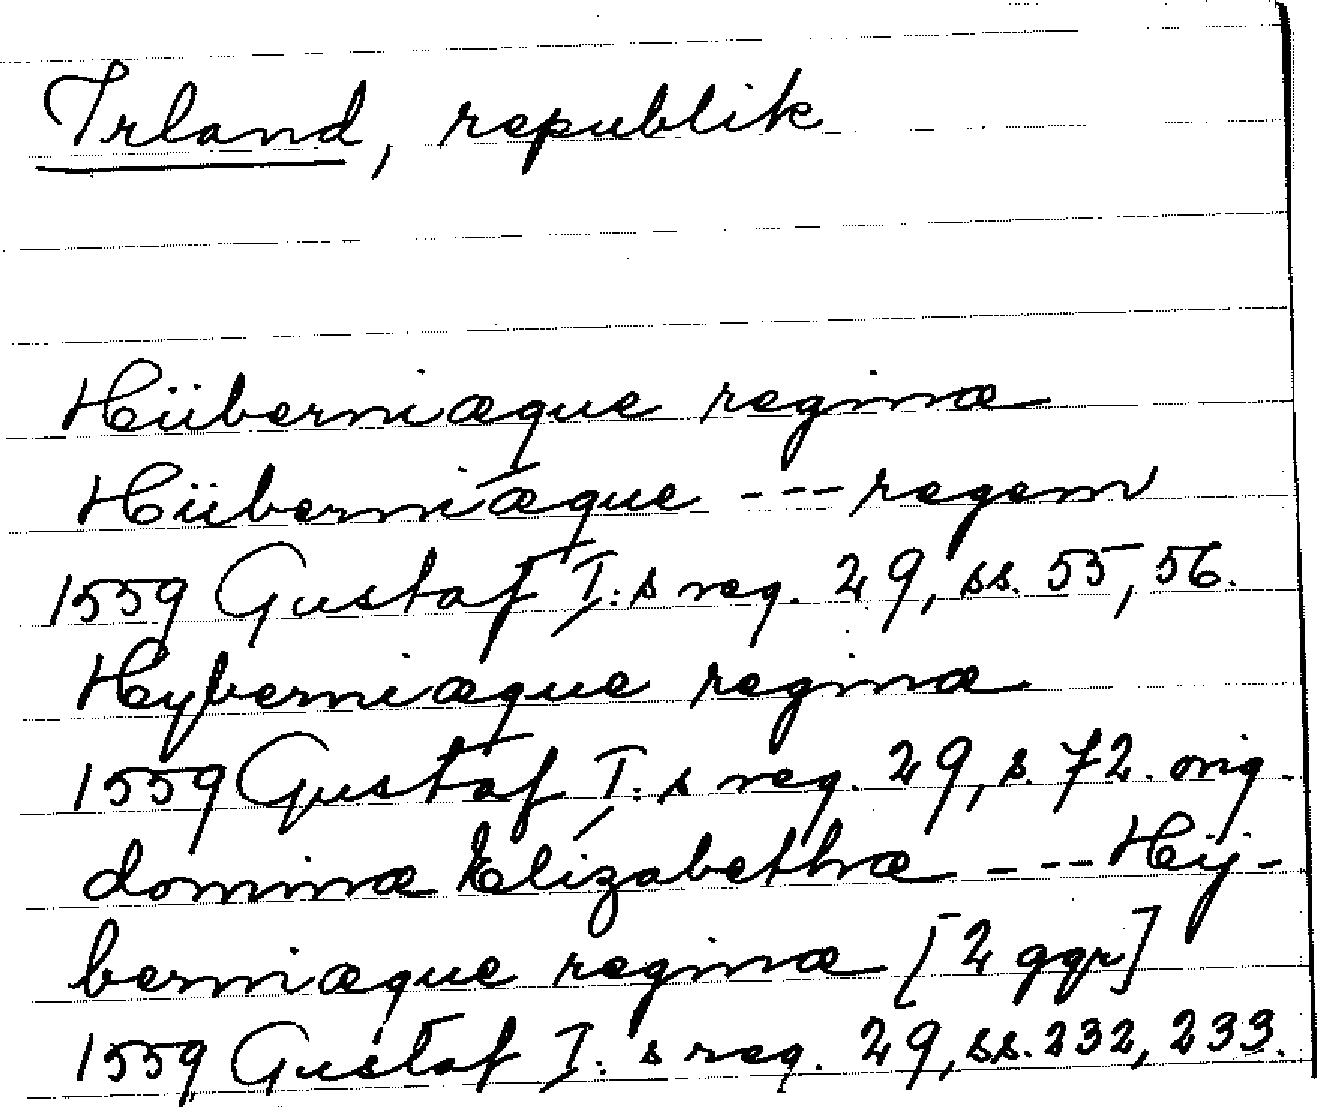 Irland, republik
Hüberniæque reginæ
Hüberniæque --- regem
1559 Gustaf I:s reg. 29, ss. 55, 56.
Hyberniæque reginæ
1559 Gustaf I:s reg. 29, s. 72. orig.
dominæ Elizabethæ --- Hÿ-
berniæque reginæ [2 ggr]
1559 Gustaf I:s reg. 29, ss. 232, 233.